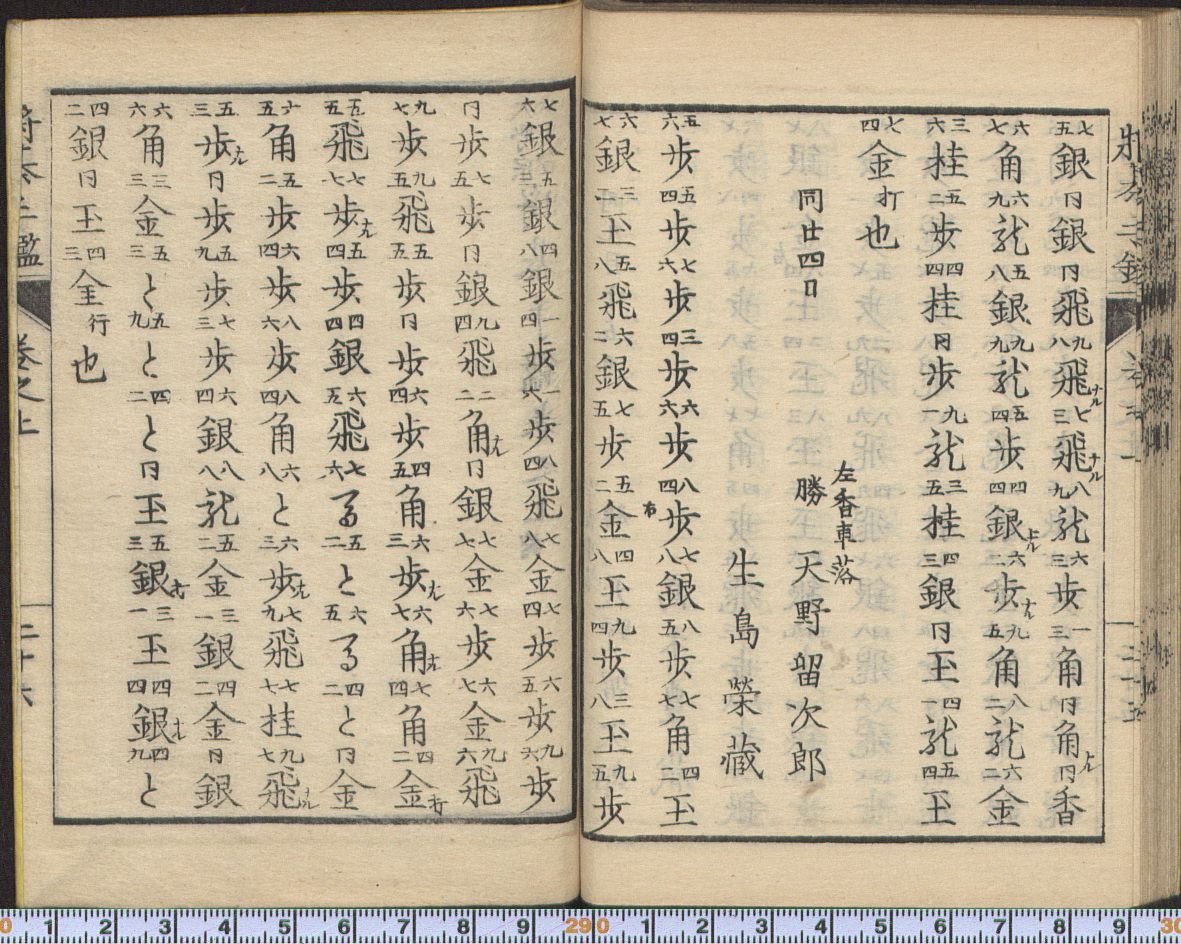 七五銀同銀同飛九八飛ナル七三飛ナル八九龍六三歩一三角同角ナル同香
六七角六九龍五八銀九九龍五四歩四四銀ナル六二歩ナル九五角八二龍六二金
三六桂五二歩四四桂同歩九一龍三五桂四三銀同玉四一龍五四玉
七四金打也
同廿四日
左香車落
勝 天野留次郎
生島榮藏
五六歩五四歩七六歩三四歩六六歩八四歩七八銀八五歩七七角四二玉
六七銀三二玉五八飛六二銀七五歩五二金四八玉九四歩三八玉九五歩
七六銀五銀四八銀一四歩一六歩八四飛七八金七四歩六五歩九六歩
同歩七五歩同銀九四飛二二角ナル同銀七七金七六歩六七金九六飛
九七歩九五飛五五歩同歩六四歩四五角六三歩ナル六七角ナル七四角四二金打
五五飛七七歩ナル五四歩四四銀六五飛七六る五二と六五る四二と同金
六五角五二歩六四歩八六歩八四角六八と六三歩ナル七九飛七七桂九七飛ナル
五三歩ナル同歩五九歩七三歩六四銀八八龍五二金三一銀四二金同銀
六六角三三金五三と五九と四二と同玉五三銀打三一玉四四銀ナル四九と
四二銀同玉四三金行也
巻之上
二十六